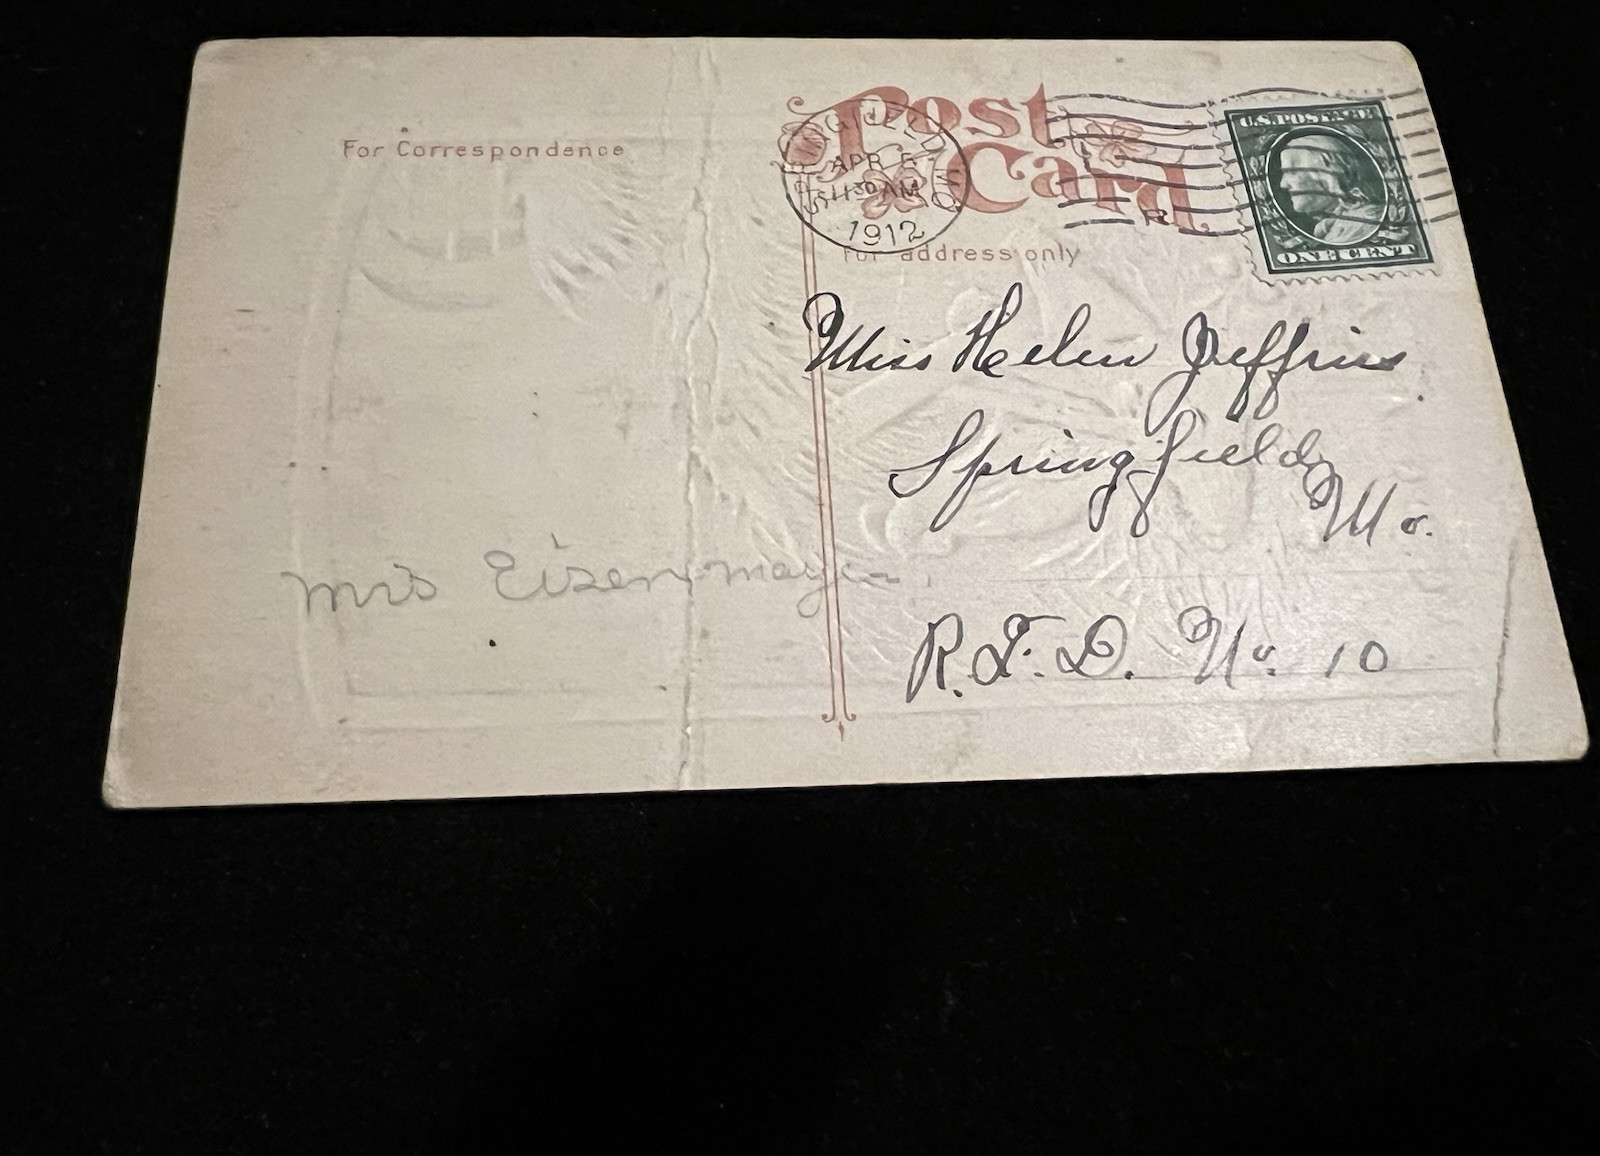 For Correspondence
Post
Card
For address only
SPRINGFIELD MO.
APR 5
1130 AM
1912
R
U.S. POSTAGE
ONE CENT
Miss Helen Jeffries
Springfield
Mo.
R.F.D. No. 10
Mrs Eisenmayer